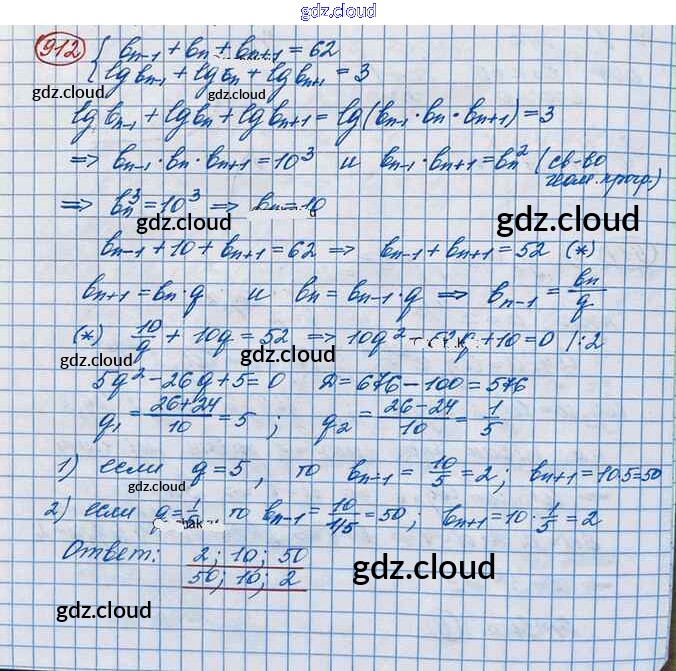 gdz.cloud
912
{ bₙ₋₁ + bₙ + bₙ₊₁ = 62
lg bₙ₋₁ + lg bₙ + lg bₙ₊₁ = 3
gdz.cloud gdz.cloud
lg bₙ₋₁ + lg bₙ + lg bₙ₊₁ = lg(bₙ₋₁ · bₙ · bₙ₊₁) = 3
=> bₙ₋₁ · bₙ · bₙ₊₁ = 10³ и bₙ₋₁ · bₙ₊₁ = bₙ² (св-во
геом. прогр.)
=> bₙ³ = 10³ => bₙ = 10
gdz.cloud gdz.cloud
bₙ₋₁ + 10 + bₙ₊₁ = 62 => bₙ₋₁ + bₙ₊₁ = 52 (*)
bₙ₊₁ = bₙ · q и bₙ = bₙ₋₁ · q => bₙ₋₁ = bₙ/q
(*) 10/q + 10q = 52 => 10q² q + 10 = 0 /:2
gdz.cloud gdz.cloud
5q² - 26q + 5 = 0 Д = 676 - 100 = 576
q₁ = (26+24)/10 = 5 ; q₂ = (26-24)/10 = 1/5
1) если q = 5, то bₙ₋₁ = 10/5 = 2; bₙ₊₁ = 10·5 = 50
gdz.cloud gdz.cloud
2) если q = то bₙ₋₁ = 10/1/5 = 50; bₙ₊₁ = 10 · 1/5 = 2
Ответ: 2; 10; 50
50; 10; 2
gdz.cloud
gdz.cloud